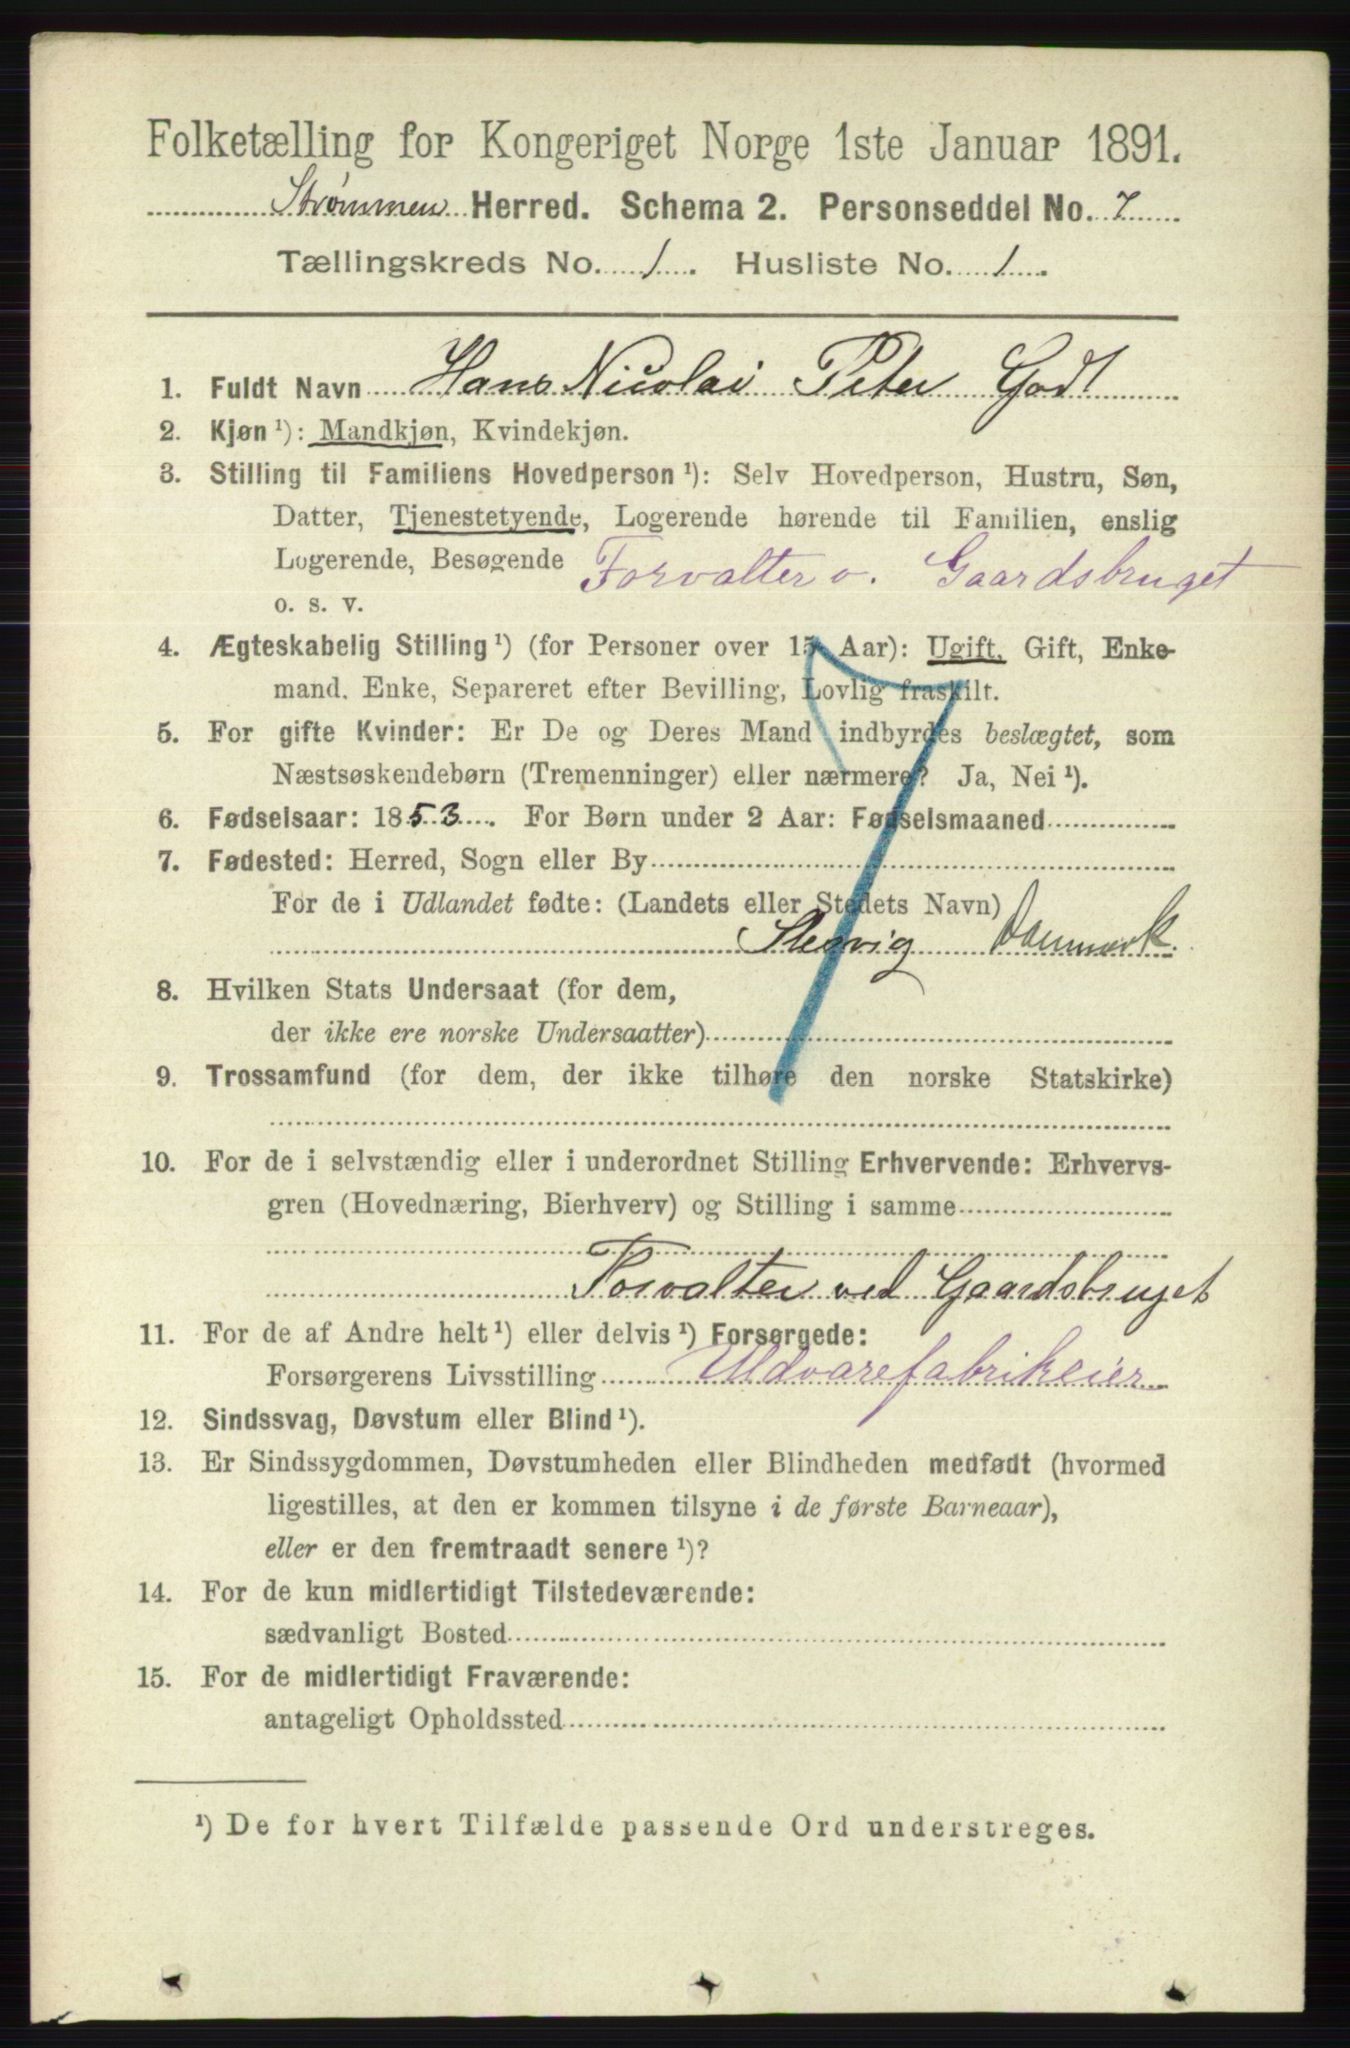 Folketælling for Kongeriget Norge 1ste Januar 1891.
Strømmen Herred. Schema 2. Personseddel No. 7
Tællingskreds No. 1. Husliste No. 1.
1. Fuldt Navn Hans Nicolai Peter Godt
2. Kjøn ¹): Mandkjøn, Kvindekjøn.
3. Stilling til Familiens Hovedperson ¹): Selv Hovedperson, Hustru, Søn,
Datter, Tjenestetyende, Logerende hørende til Familien, enslig
Logerende, Besøgende Forvalter v. Gaardsbruget
o. s. v.
4. Ægteskabelig Stilling ¹) (for Personer over 15 Aar): Ugift, Gift, Enke-
mand, Enke, Separeret efter Bevilling, Lovlig fraskilt.
5. For gifte Kvinder: Er De og Deres Mand indbyrdes beslægtet, som
Næstsøskendebørn (Tremenninger) eller nærmere? Ja, Nei ¹).
6. Fødselsaar: 1853. For Børn under 2 Aar: Fødselsmaaned
7. Fødested: Herred, Sogn eller By
For de i Udlandet fødte: (Landets eller Stedets Navn)
Slesvig Danmark.
8. Hvilken Stats Undersaat (for dem,
der ikke ere norske Undersaatter)
9. Trossamfund (for dem, der ikke tilhøre den norske Statskirke)
10. For de i selvstændig eller i underordnet Stilling Erhvervende: Erhvervs-
gren (Hovednæring, Bierhverv) og Stilling i samme
Forvalter ved Gaardsbruget
11. For de af Andre helt ¹) eller delvis ¹) Forsørgede:
Forsørgerens Livsstilling Uldvarefabrikeier
12. Sindssvag, Døvstum eller Blind ¹).
13. Er Sindssygdommen, Døvstumheden eller Blindheden medfødt (hvormed
ligestilles, at den er kommen tilsyne i de første Barneaar),
eller er den fremtraadt senere ¹)?
14. For de kun midlertidigt Tilstedeværende:
sædvanligt Bosted
15. For de midlertidigt Fraværende:
antageligt Opholdssted
¹) De for hvert Tilfælde passende Ord understreges.